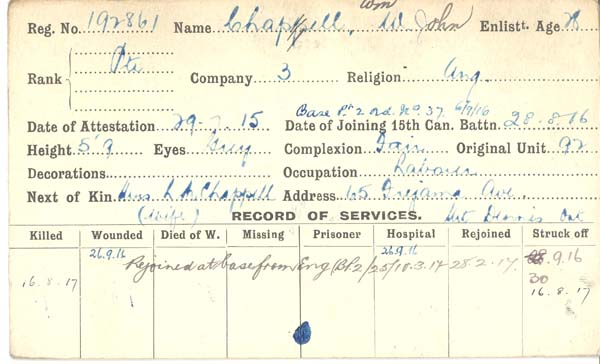 Wm
Reg. No. 192861 Name Chappell, W John Enlistt. Age
Rank Pte Company 3 Religion Ang
Base Pt 2 Ord. No. 37. 6/9/16
Date of Attestation 29-7.15 Date of Joining 15th Can. Battn. 28.8.16
Height 5'9 Eyes Grey Complexion Original Unit 92
Decorations Occupation Labourer
Next of Kin Mrs. L A Chappell Address 65 Ave.
(Wife) RECORD OF SERVICES. Mt Dennis Ont
Killed Wounded Died of W. Missing Prisoner Hospital Rejoined Struck off
26.9.16 26.9.16 28.9.16
Rejoined at base from Eng (Pt 2/25/10.3.17 28.2.17.
30
16.8.17 16.8.17